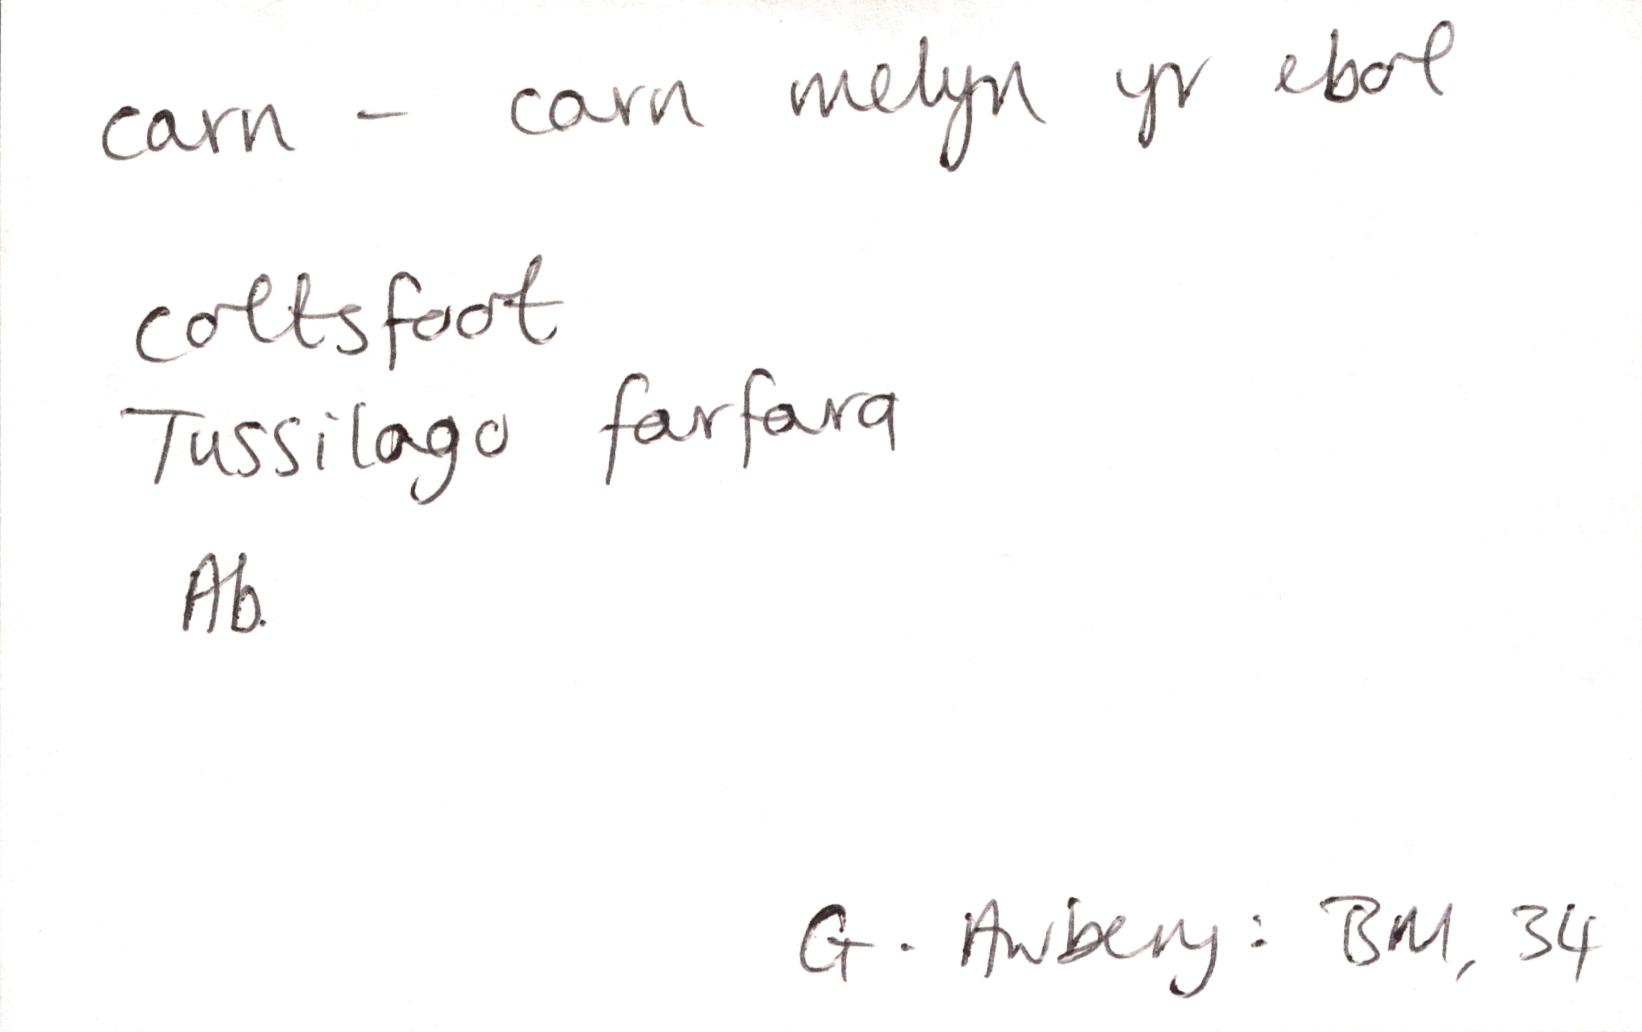 carn - carn melyn yr ebol
coltsfoot
Tussilago farfara
Ab.
G. Awbery: BM, 34